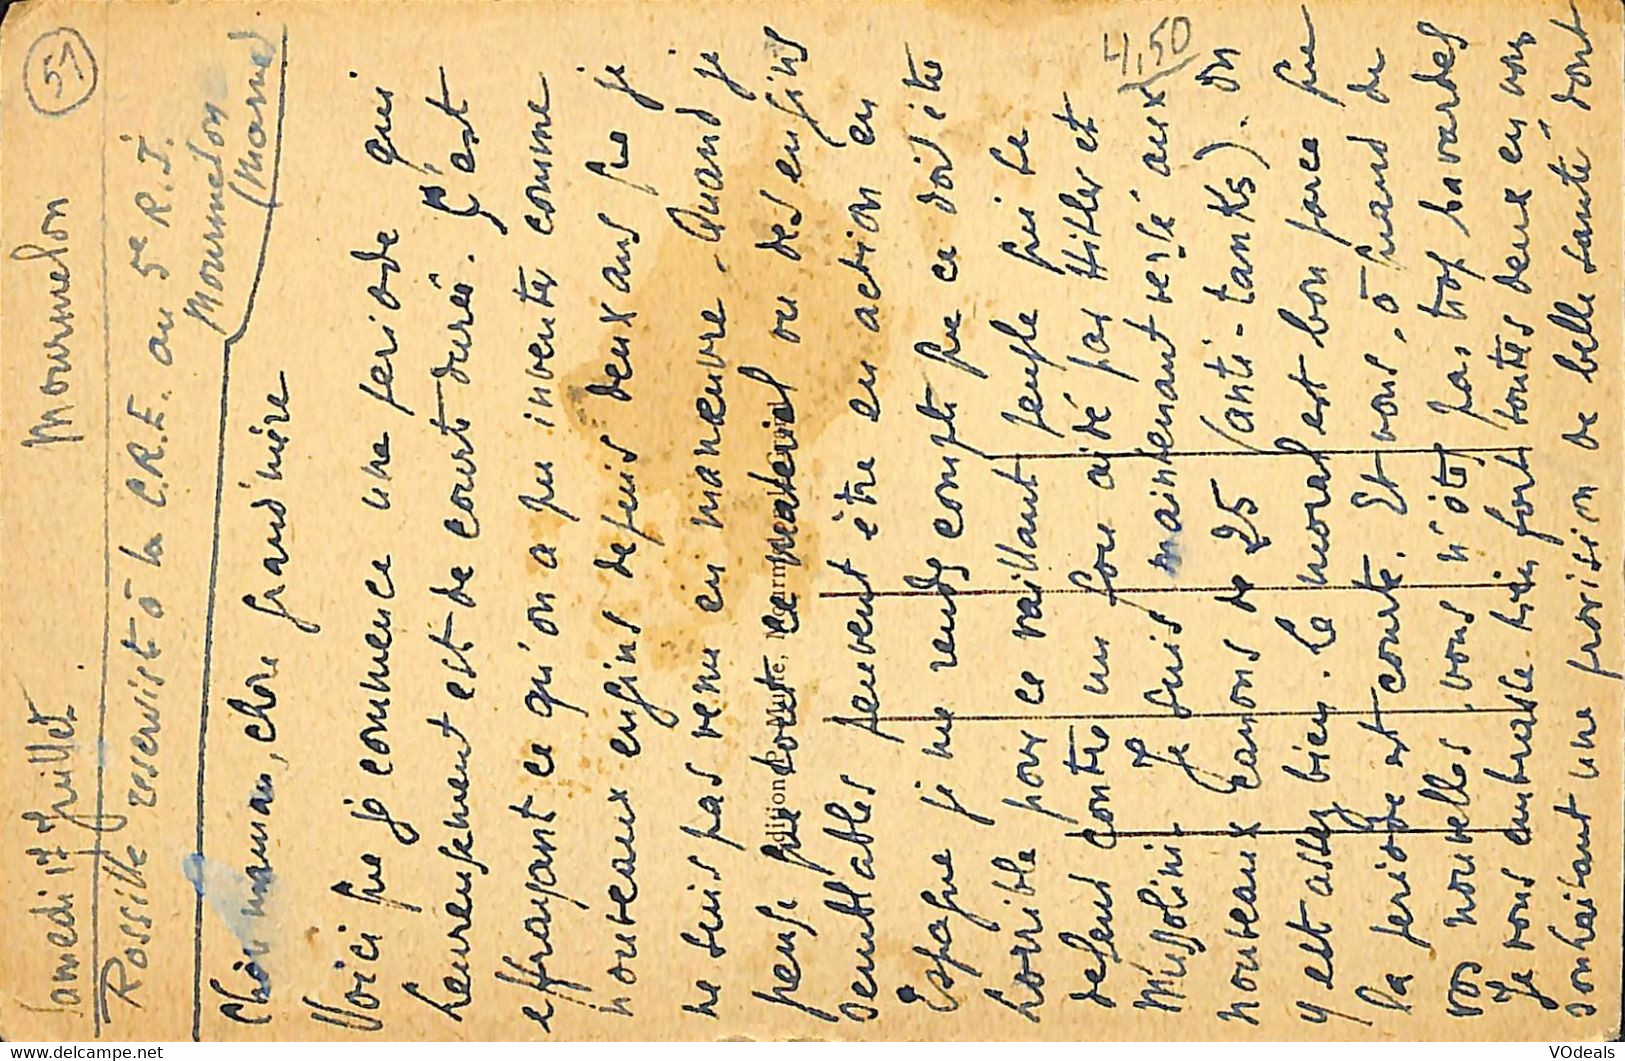 Samedi 17 Juillet
Mourmelon
51
Rossille reserviste à la C.R.E. au 5e R.I.
Mourmelon
(Marne)
4,50
Chère maman, chère grand'mère
Voici que je commence une periode qui
heureusement est de courte durée. C'est
effrayant ce qu'on a pu inventer comme
nouveaux engins depuis deux ans que je
ne suis pas venu en manoeuvre. Quand je
pense que tout ce materiel ou des engins
semblables peuvent être en action en
Espagne je me rends compte que ce doit être
horrible pour ce vaillant peuple qui se
defend contre un fou aidé par Hitler et
Mussolini. Je suis maintenant versé aux
nouveaux canons de 25 (anti-tanks). On
y est assez bien. Le moral est bon parce que
la periode est courte. Et vous, à quand de
vos nouvelles, vous n'êtes pas trop bavardes
Je vous embrasse bien fort toutes deux en vous
souhaitant une provision de belle santé dont
Edition